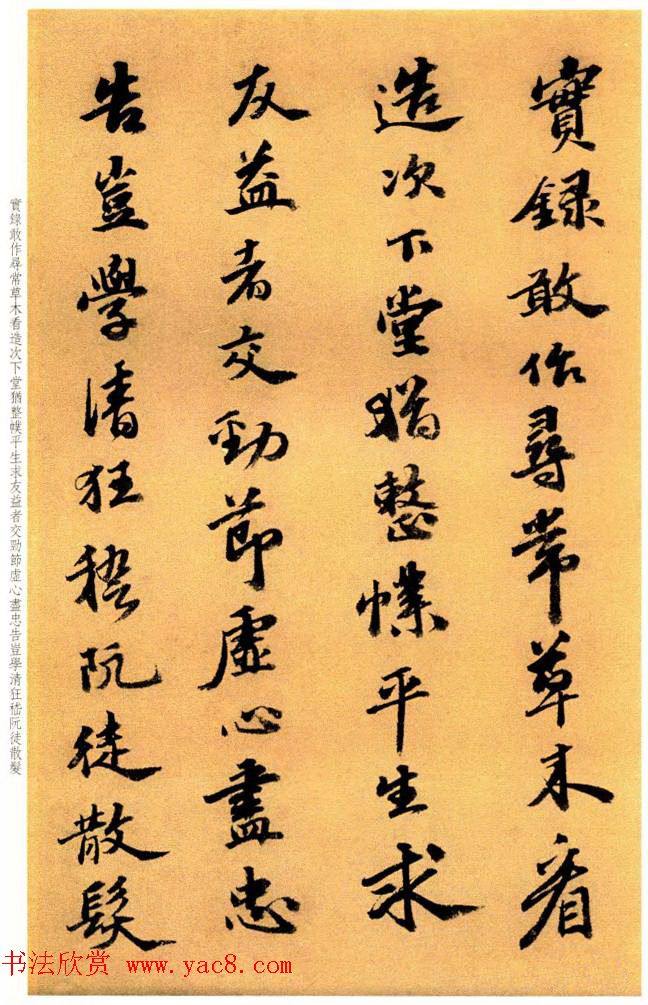 實錄敢作尋常草木看
造次下堂猶整幞平生求
友益者交勁節虛心盡忠
告豈學清狂嵇阮徒散髮
實錄敢作尋常草木看造次下堂猶整幞平生求友益者交勁節虛心盡忠告豈學清狂嵇阮徒散髮
书法欣赏 www.yac8.com